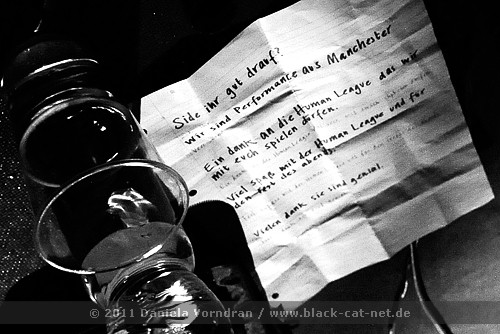 Side ihr gut drauf?
Wir sind Performance aus Manchester
Ein dank an die Human League das wir
mit euch spielen dorfen.
Viel spaß mit der Human League und für
den rest des abends.
Vielen dank, sie sind genial.
© 2011 Daniela Vorndran / www.black-cat-net.de